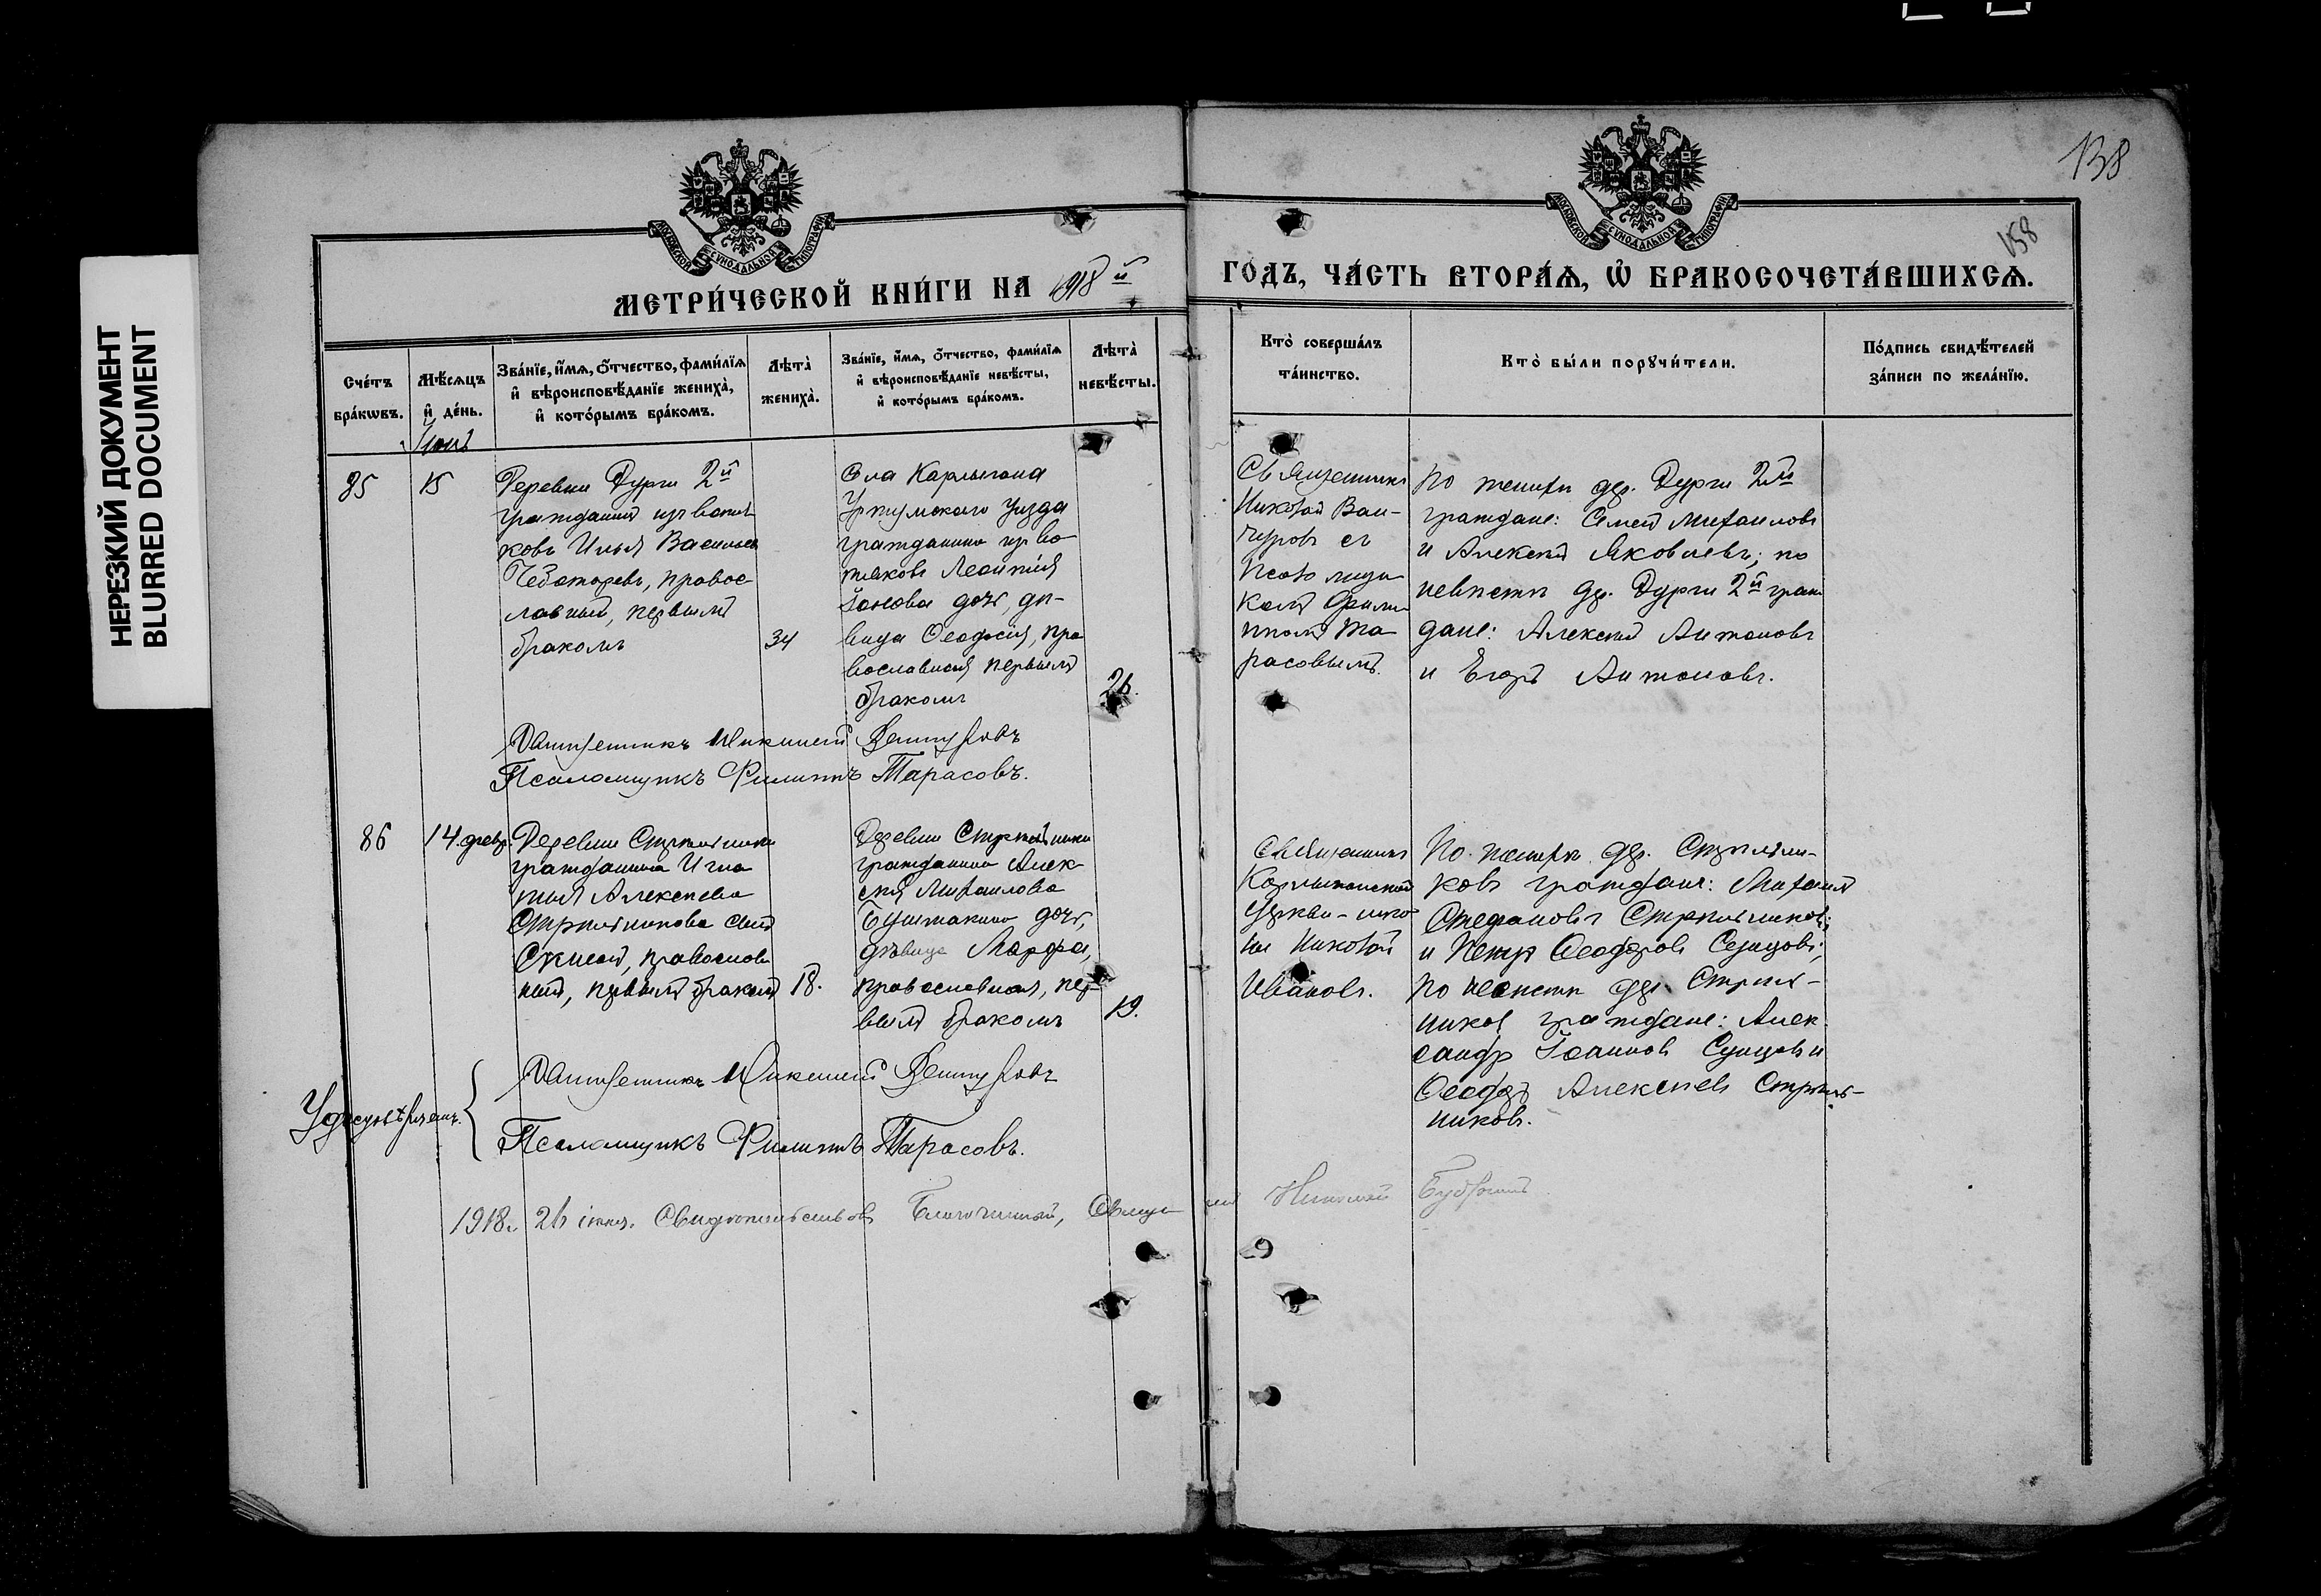 138
158
НЕРЕЗКИЙ ДОКУМЕНТ
BLURRED DOCUMENT
МОСКОВСКОЙ СѴНОДАЛЬНОЙ ТИПОГРАФІИ
МОСКОВСКОЙ СѴНОДАЛЬНОЙ ТИПОГРАФІИ
МЕТРИ́ЧЕСКОЙ КНИ́ГИ НА 1918 й
ГОДЪ, ЧА́СТЬ ВТОРА́Ѧ, Ѡ҆ БРАКОСОЧЕТА́ВШИХСѦ.
Сче́тъ
бра́кѡвъ.
Мѣ́сѧцъ
и҆ де́нь.
Зва́нїе, и҆́мѧ, ѻ҆́тчество, фами́лїѧ
и҆ вѣроисповѣ́данїе жениха̀,
и҆ кото́рымъ бра́комъ.
Лѣта̀
жениха̀.
Зва́нїе, и҆́мѧ, ѻ҆́тчество, фами́лїѧ
и҆ вѣроисповѣ́данїе невѣ́сты,
и҆ кото́рымъ бра́комъ.
Лѣта̀
невѣ́сты.
Кто̀ соверша́лъ
та́инство.
Кто̀ бы́ли порꙋчи́тели.
По́дпись свидѣ́телей
за́писи по жела́нїю.
85
15
Деревни Дурги 2й
гражданинъ изъ вотя
ковъ Илья Васильевъ
Чеботаревъ, правос-
лавный, первымъ
бракомъ
34
Села Карлыгана
Уржумскаго уѣзда
гражданина изъ во
тяковъ Леонтія
дочь, дѣ-
вица Ѳеодосія, пра
вославная первымъ
бракомъ
26.
Священникъ
Николай Ван-
чуровъ съ
Псаломщи
комъ Филип
помъ Та
расовымъ.
По женихѣ дер. Дурги 2й
граждане: Семенъ Михаиловъ
и Алексѣй Яковлевъ; по
невѣстѣ дер. Дурги 2й граж
дане: Алексѣй Антоновъ
и Егоръ Антоновъ.
Священникъ Николай Ванчуровъ
Псаломщикъ Филиппъ Тарасовъ.
86
14 февр.
Деревни Стрѣльники
гражданина Игна
тія Алексѣева
Стрѣльникова сынъ
православ
ный, первымъ бракомъ
18.
Деревни Стрѣльники
гражданина Алек
сѣя Михаилова
дочь,
дѣвица Марфа,
православная, пер-
вымъ бракомъ
19.
Священникъ
Карлыганской
церкви
Николай
Ивановъ.
По женихѣ дер. Стрѣльни-
ковъ граждане: Михаилъ
Стефановъ Стрѣльниковъ
и Петръ Ѳеодоровъ Сунцовъ;
по невѣстѣ дер. Стрѣль-
никовъ граждане: Алек
сандръ Іоанновъ Сунцовъ и
Ѳеодоръ Алексѣевъ Стрѣль-
никовъ.
Священникъ Николай Ванчуровъ
Псаломщикъ Филиппъ Тарасовъ.
1918 г. 26 іюня. Свидѣтельствовалъ Благочинный, Священ
ник Николай